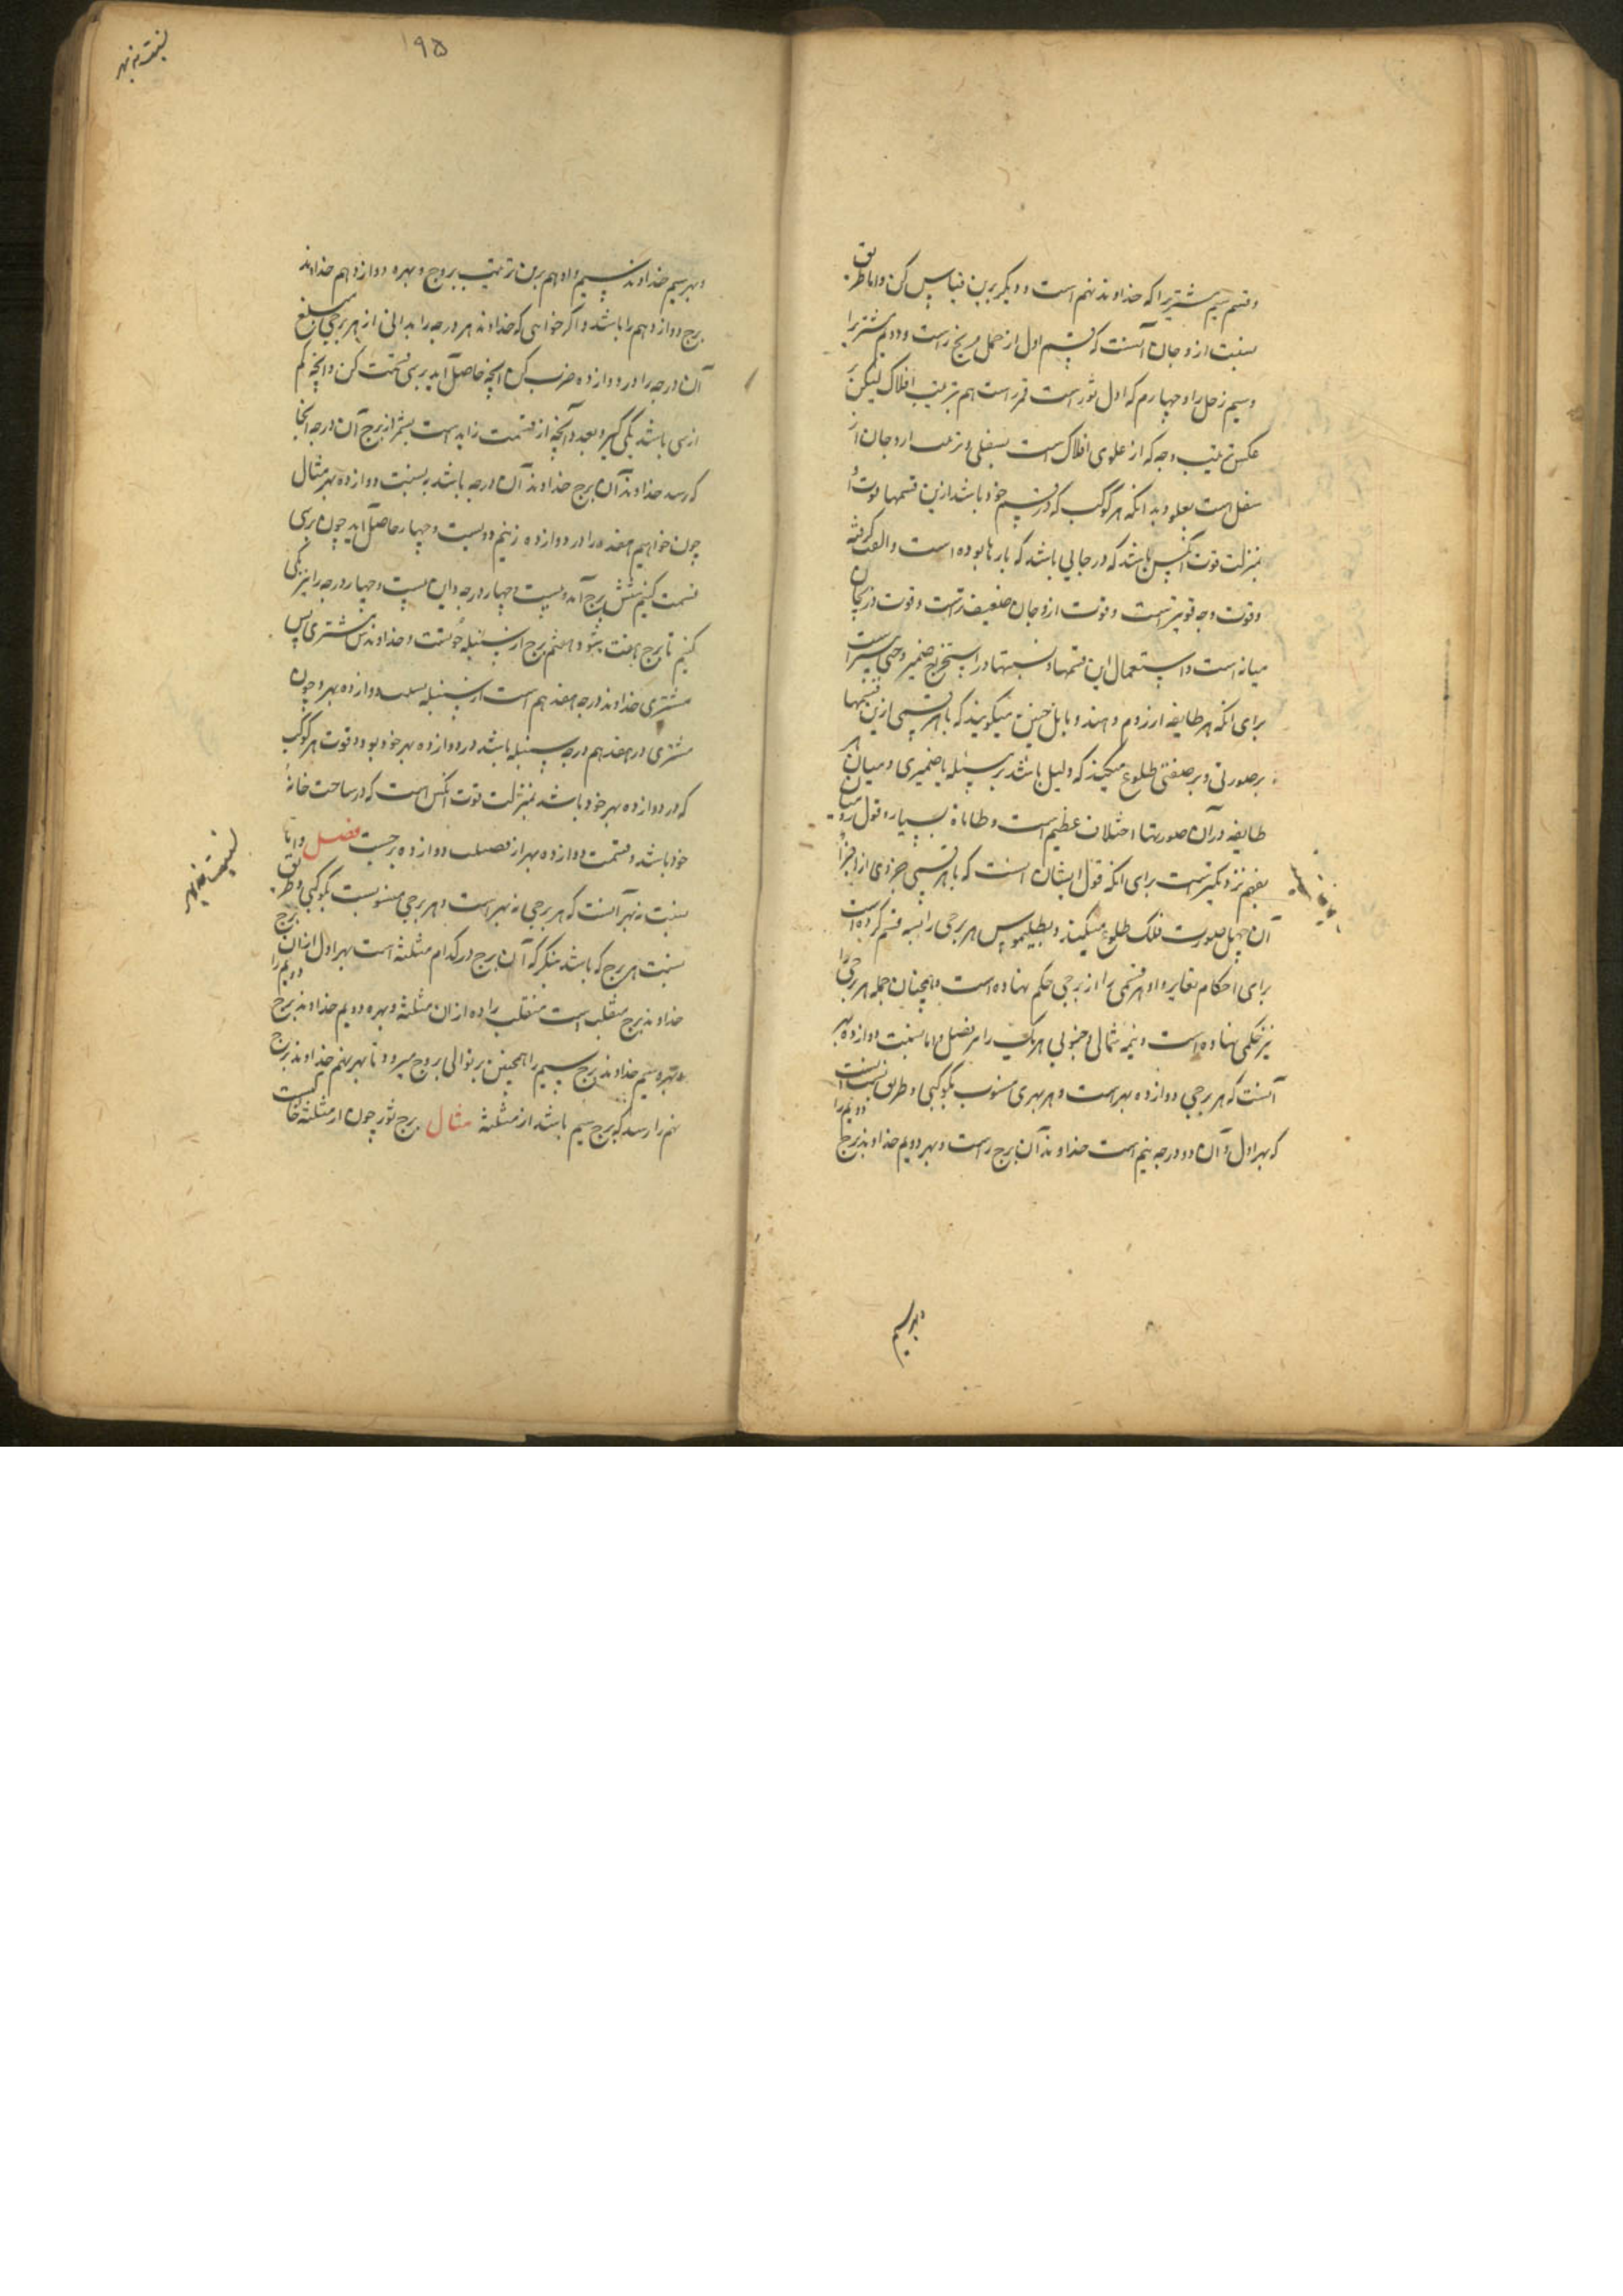 وقسم سیم مشتریرا که خداوند نهم است و دیگر برین قیاس کن واما طریق
نسبت ازوجان آنست که قسم اول از حمل مریخ راست و دویم مشتریرا
وسیم زحل را و چهارم که اول ثور است قمر راست هم بترتیب افلاک لیکن بر
عکس ترتیب وجه که از علوی افلاک است بسفلی و ترتیب ازوجان از
سفل است بعلو وبدانکه هر کوکب که در قسم خود باشد ازین قسمها قوت او
بمنزلت قوت انکس باشد که در جایی باشد که بارها بوده است والفت گرفته
وقوت وجه قویتر است وقوت ازوجان ضعیف تر است وقوت دریجان
میانه است واستعمال این قسمها ونسبتها در استخراج ضمیر وخبی بیشتر است
برای انکه هر طایفه از روم وهند وبابل چنین میگویند که باهر قسمی ازین قسمها
برصورتی وبرصفتی طلوع میکند که دلیل باشد بر مسئله یا ضمیری ومیان هر
طایفه در آن صورتها اختلاف عظیم است وطامات بسیار وقول رومیا
بفهم نزدیکتر است برای انکه قول ایشان آنست که باهر قسمی جزوی از اجزا
آن چهل صورت فلک طلوع میکند وبطلیموس هر برجی را بسه قسم کرده است
برای احکام تغایر واو هر قسمی را از برجی حکم نهاده است وهمچنان جمله هر برجی را
نیز حکمی نهاده است ونیمه شمالی وجنوبی هر یک را بر فصل واما نسبت دوازده بهر
آنست که هر برجی دوازده بهر است وهر بهری منسوب بکوکبی وطریق نسبت آنست
که بهر اول وآن دو درجه ونیم است خداوند آن برج راست وبهر دویم خداوند برج دویم را
وبهر سیم
۱۹۵
نسبت نه بهر
وبهر سیم خداوند سیم را وهم برین ترتیب بروج وبهره دوازدهم خداوند
برج دوازدهم را باشد واگر خواهی که خداوند هر درجه را بدانی از هر برجی مبلغ
آن درجه را در دوازده ضرب کن آنچه حاصل آید برسی قسمت کن وآنچه کم
ازسی باشد یکی گیر وبعد آنچه از قسمت زاید است بشمر از برج آن درجه آنجا
که رسد خداوند آن برج خداوند آن درجه باشد به نسبت دوازده بهر مثال
چون خواهیم هفده را در دوازده زنیم دویست وچهار حاصل آید چون برسی
قسمت کنیم شش برج آمد وبیست وچهار درجه واین بیست وچهار درجه را نیز یکی
کنیم تا برج هفت شود وهفتم برج از سنبله حوتست وخداوندش مشتری پس
مشتری خداوند درجه هفدهم است از سنبله بنسبت دوازده بهر وچون
مشتری در هفدهم درجه سنبله باشد در دوازده بهر خود بود وقوت هر کوکب
که در دوازده بهر خود باشد بمنزلت قوت انکس است که در ساحت خانهٔ
خود باشد وقسمت دوازده بهر از دوازده برجست فصل واما
نسبت نه بهر آنست که هر برجی نه بهر است وهر برجی منسوبست بکوکبی وطریق
نسبت هر برج که باشد بنگر که آن برج در کدام مثلثه است بهر اول ازان برج
خداوند برج منقلب است منقلب را ده ازان مثلثه وبهره دویم خداوند برج دویم را
وبهره سیم خداوند برج سیم را همچنین بر توالی بروج میرود تا بهر نهم خداوند برج
نهم را رسد که برج سیم باشد از مثلثه مثال برج ثور چون از مثلثه خاکیست
نسبت نه بهر